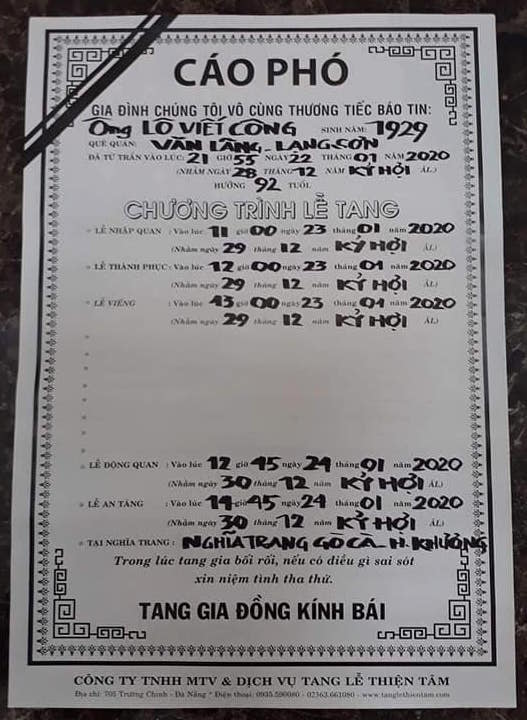 CÁO PHÓ
GIA ĐÌNH CHÚNG TÔI VÔ CÙNG THƯƠNG TIẾC BÁO TIN:
Ông LÔ VIẾT CÔNG SINH NĂM: 1929
QUÊ QUÁN: VĂN LÃNG - LẠNG SƠN
ĐÃ TỪ TRẦN VÀO LÚC: 21 GIỜ 55 NGÀY 22 THÁNG 01 NĂM 2020
(NHẰM NGÀY 28 THÁNG 12 NĂM KỶ HỢI ÂL)
HƯỞNG 92 TUỔI
CHƯƠNG TRÌNH LỄ TANG
LỄ NHẬP QUAN : Vào lúc 11 giờ 00 ngày 23 tháng 01 năm 2020
(Nhằm ngày 29 tháng 12 năm KỶ HỢI ÂL)
LỄ THÀNH PHỤC : Vào lúc 12 giờ 00 ngày 23 tháng 01 năm 2020
(Nhằm ngày 29 tháng 12 năm KỶ HỢI ÂL)
LỄ VIẾNG : Vào lúc 13 giờ 00 ngày 23 tháng 01 năm 2020
(Nhằm ngày 29 tháng 12 năm KỶ HỢI ÂL)
LỄ ĐỘNG QUAN : Vào lúc 12 giờ 45 ngày 24 tháng 01 năm 2020
(Nhằm ngày 30 tháng 12 năm KỶ HỢI ÂL)
LỄ AN TÁNG : Vào lúc 14 giờ 45 ngày 24 tháng 01 năm 2020
(Nhằm ngày 30 tháng 12 năm KỶ HỢI ÂL)
TẠI NGHĨA TRANG : NGHĨA TRANG GÒ CÀ - H. KHƯƠNG
Trong lúc tang gia bối rối, nếu có điều gì sai sót
xin niệm tình tha thứ.
TANG GIA ĐỒNG KÍNH BÁI
CÔNG TY TNHH MTV & DỊCH VỤ TANG LỄ THIỆN TÂM
Địa chỉ: 705 Trường Chinh - Đà Nẵng * Điện thoại: 0935.590080 - 02363.661080 - www.tanglethientam.com